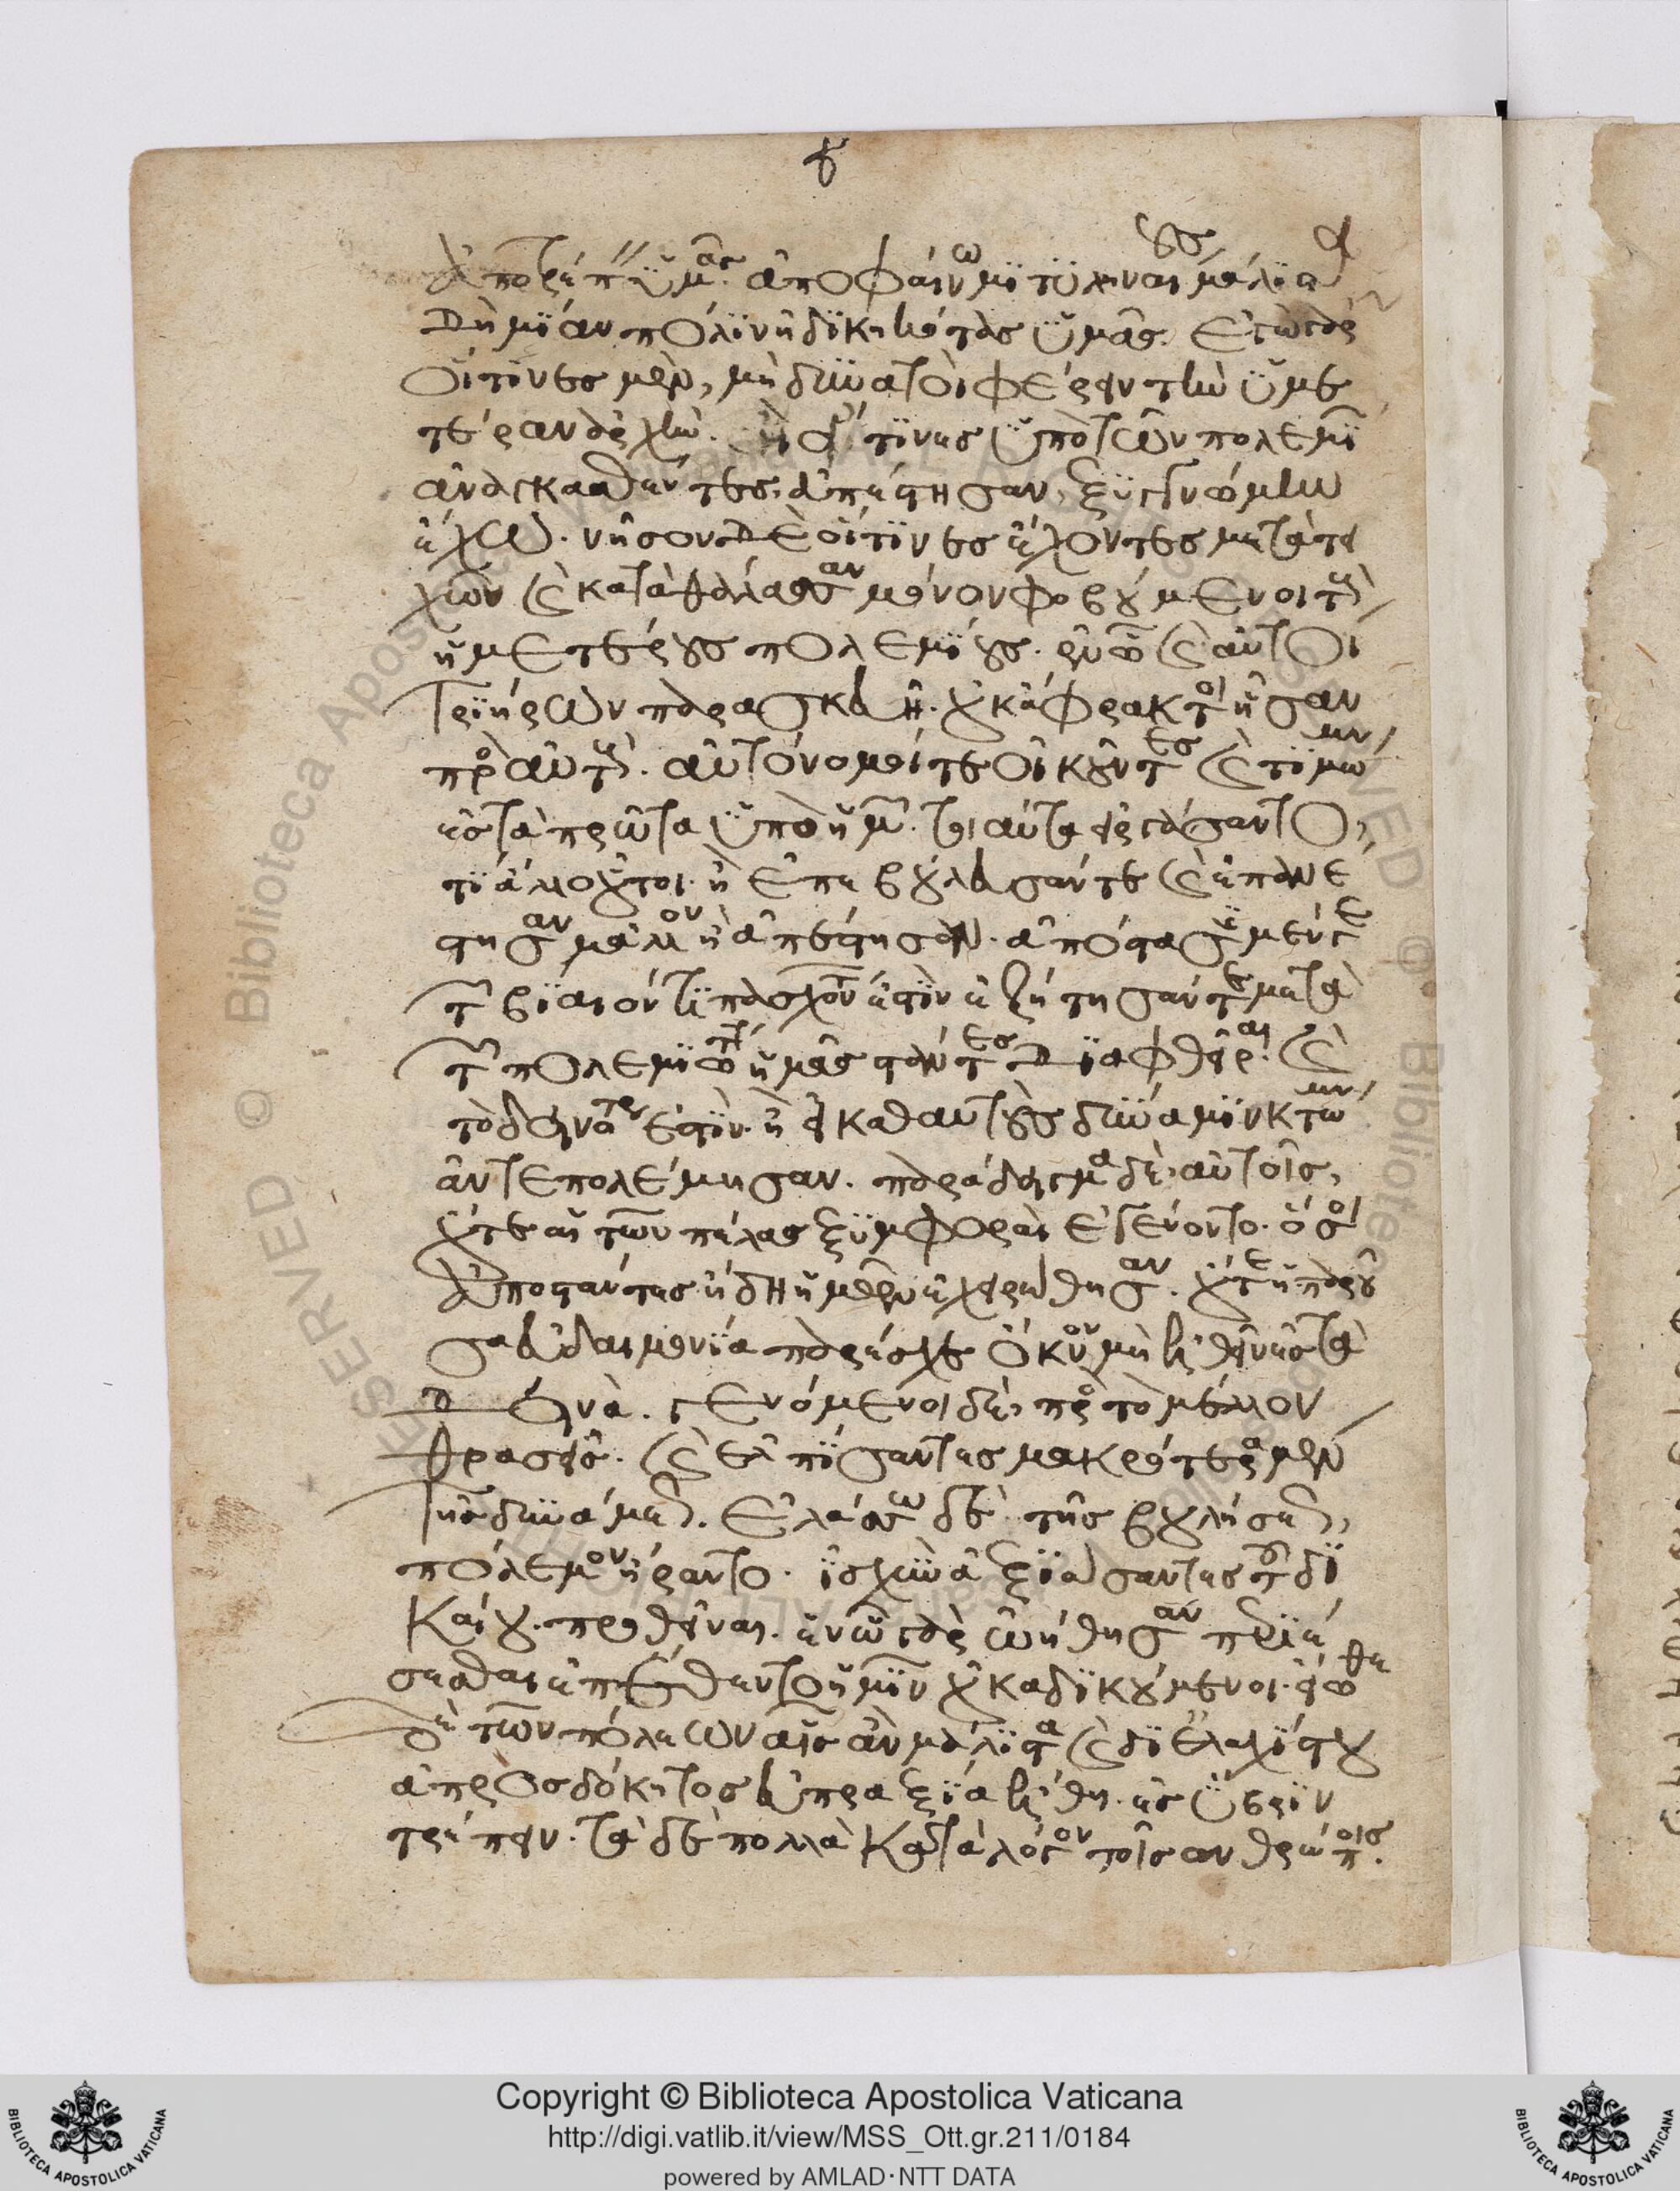 ἀποτρέπειν ὑμᾶς ἀποφαίνω μιτυληναίους μάλιστα
δὴ μίαν πόλιν ἠδικηκότας ὑμᾶς. ἐγὼ γὰρ
οἵτινες μὲν, μὴ δυνατοὶ φέρειν τὴν ὑμε
τέραν ἀρχὴν. ἢ οἵ τινες ὑπὸ τῶν πολεμί
ἀναγκασθέντες, ἀπέστησαν, ξυγγνώμην
ἔχω. νῆσον δὲ οἵτινες ἔχοντες μετὰ τει
χῶν καὶ κατὰ θάλασσαν μόνον φοβούμενοι τοὺς
ἡμετέρους πολεμίους. ἐν ᾧ καὶ αὐτοὶ
τριήρων παρασκευῇ. οὐκ ἄφρακτοι ἦσαν
πρὸς αὐτούς. αὐτόνομοί τε οἰκοῦντες καὶ τιμώμενοι
ἐς τὰ πρῶτα ὑπὸ ἡμῶν. τοιαῦτα εἰργάσαντο,
τί ἄλλο οὗτοι. ἢ ἐπεβούλευσάν τε καὶ ἐπανέ
στησαν μᾶλλον ἢ ἀπέστησαν. ἀπόστασις μέν γε
τῶν βίαιόν τι πασχόντων ἐστὶν ἐζήτησάν τε μετὰ
τῶν πολεμιωτάτων ἡμᾶς στάντες διαφθεῖραι. καὶ
τὸ δεινότερον ἐστὶν. ἢ εἰ καθ αυτοὺς δύναμιν κτώμενοι
ἀντεπολέμησαν. παράδειγμα δὲ αὐτοῖς,
οὔτε αἱ τῶν πέλας ξυμφοραὶ ἐγένοντο. ὅσοι
ἀποστάντες ἤδη ἡμῶν ἐχειρώθησαν. οὔτε ἡ παροῦ
σα εὐδαιμονία παρέσχε ὄκνον μὴ ἐλθεῖν ἐς τὰ
δεινὰ. γενόμενοι δὲ πρὸς τὸ μέλλον
θρασεῖς. καὶ ἐλπίσαντες μακρότερα μὲν
τῆς δυνάμεως. ἐλάσσω δὲ τῆς βουλήσεως,
πόλεμον ἤραντο. ἰσχὺν ἀξιώσαντες τοῦ δι
καίου. προθεῖναι. ἐν ᾧ γὰρ ᾠήθησαν περιέ
σεσθαι ἐπέθεντο ἡμῖν οὐκ ἀδικούμενοι. εἴωθε
δὲ τῶν πόλεων αἷς ἂν μάλιστα καὶ δι ἐλαχίστου
ἀπροσδόκητος εὐπραξία ἔλθη. ἐς ὕβριν
τρέπειν. τὰ δὲ πολλὰ κατὰ λόγον τοῖς ανθρώποις.
Copyright © Biblioteca Apostolica Vaticana
http://digi.vatlib.it/view/MSS_Ott.gr.211/0184
powered by AMLAD·NTT DATA